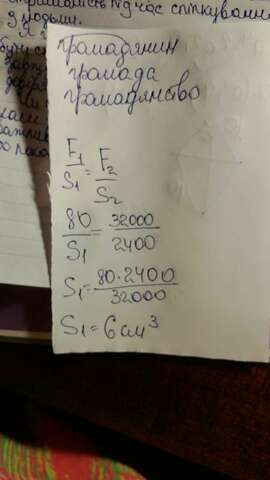 під час спілкуванн
з людьми.
громадянин
громада
громадянство
F₁/S₁ = F₂/S₂
80/S₁ = 32000/2400
S₁ = 80·2400/32000
S₁ = 6 см³